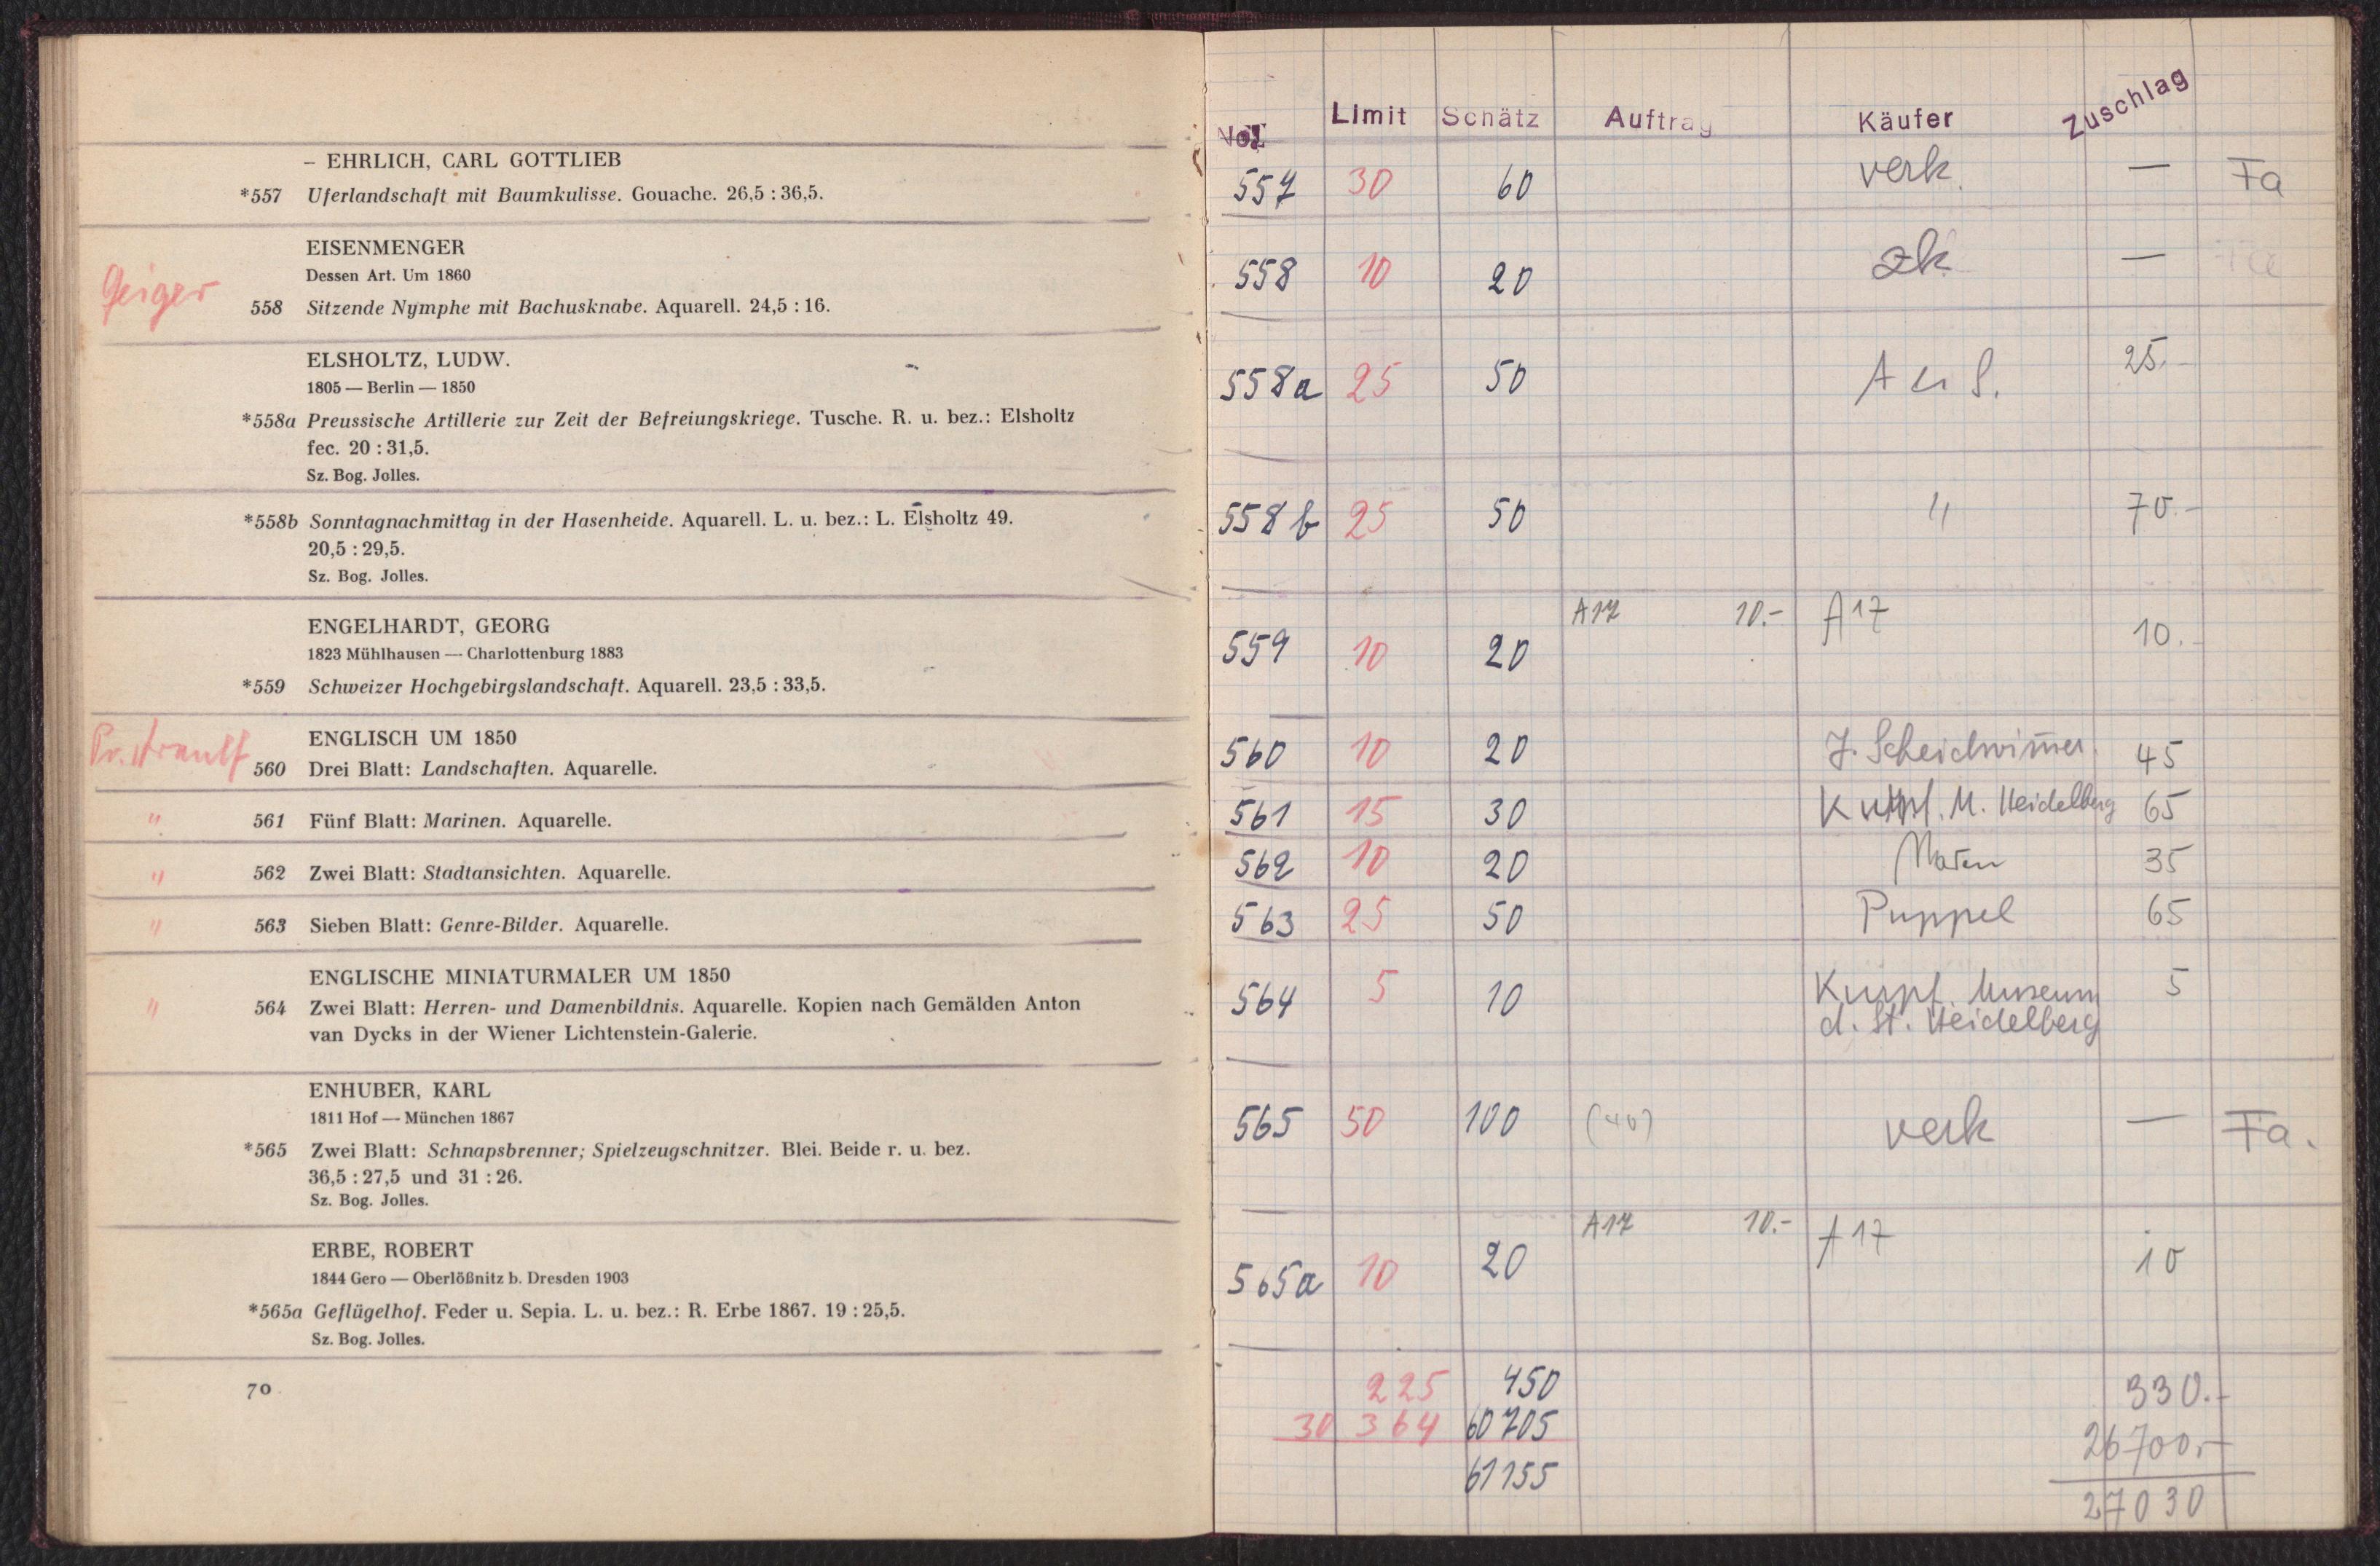 – EHRLICH, CARL GOTTLIEB
*557 Uferlandschaft mit Baumkulisse. Gouache. 26,5 : 36,5.
EISENMENGER
Dessen Art. Um 1860
Geiger
558 Sitzende Nymphe mit Bachusknabe. Aquarell. 24,5 : 16.
ELSHOLTZ, LUDW.
1805 — Berlin — 1850
*558a Preussische Artillerie zur Zeit der Befreiungskriege. Tusche. R. u. bez.: Elsholtz
fec. 20 : 31,5.
Sz. Bog. Jolles.
*558b Sonntagnachmittag in der Hasenheide. Aquarell. L. u. bez.: L. Elsholtz 49.
20,5 : 29,5.
Sz. Bog. Jolles.
ENGELHARDT, GEORG
1823 Mühlhausen — Charlottenburg 1883
*559 Schweizer Hochgebirgslandschaft. Aquarell. 23,5 : 33,5.
ENGLISCH UM 1850
Pr.
560 Drei Blatt: Landschaften. Aquarelle.
" 561 Fünf Blatt: Marinen. Aquarelle.
" 562 Zwei Blatt: Stadtansichten. Aquarelle.
" 563 Sieben Blatt: Genre-Bilder. Aquarelle.
ENGLISCHE MINIATURMALER UM 1850
" 564 Zwei Blatt: Herren- und Damenbildnis. Aquarelle. Kopien nach Gemälden Anton
van Dycks in der Wiener Lichtenstein-Galerie.
ENHUBER, KARL
1811 Hof — München 1867
*565 Zwei Blatt: Schnapsbrenner; Spielzeugschnitzer. Blei. Beide r. u. bez.
36,5 : 27,5 und 31 : 26.
Sz. Bog. Jolles.
ERBE, ROBERT
1844 Gero — Oberlößnitz b. Dresden 1903
*565a Geflügelhof. Feder u. Sepia. L. u. bez.: R. Erbe 1867. 19 : 25,5.
Sz. Bog. Jolles.
70
Limit Schätz Auftrag Käufer Zuschlag
557 30 60 verk. — Fa
558 10 20 zk —
558a 25 50 A u S. 25.-
558b 25 50 " 70.-
559 10 20 A17 10.- A17 10.-
560 10 20 J. Scheidwim̄er 45
561 15 30 Kurpf. M. Heidelberg 65
562 10 20 35
563 25 50 Puppel 65
564 5 10 Kurpf. Museum 5
d. St. Heidelberg
565 50 100 (40) verk — Fa.
565a 10 20 A17 10.- A17 10
225 450 330.-
30 364 60705 26700.-
61155 27030